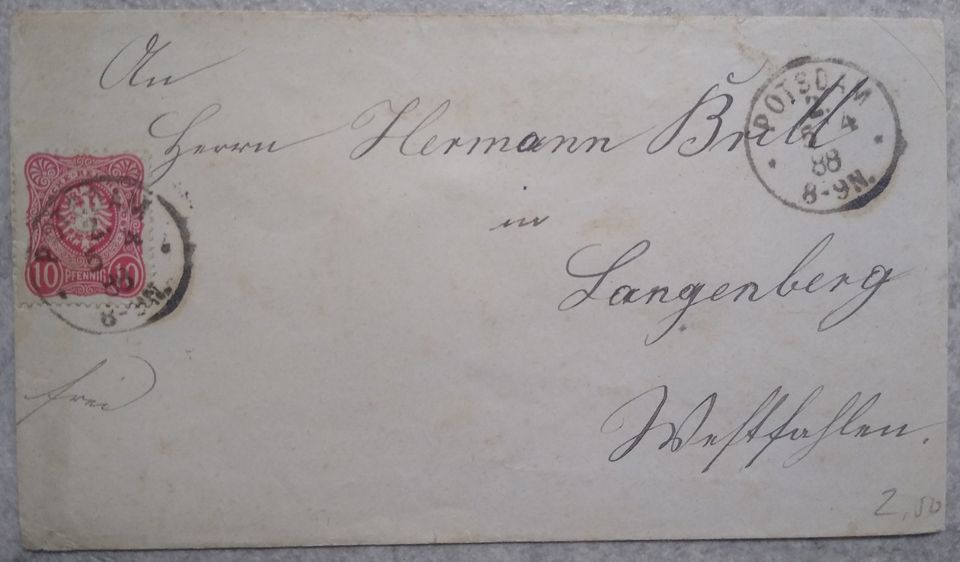 An
Herrn Hermann Brill
in
Langenberg
Westfahlen.
frei
10 PFENNIG 10
POTSDAM
4
88
8-9N.
88
8-9N.
2,50